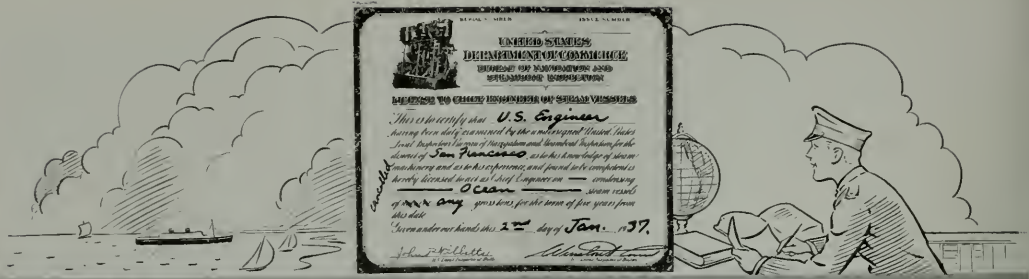 SERIAL NUMBER ISSUE NUMBER
UNITED STATES
DEPARTMENT OF COMMERCE
BUREAU OF NAVIGATION AND
STEAMBOAT INSPECTION
LICENSE TO CHIEF ENGINEER OF STEAM VESSELS
This is to certify that U.S. Engineer
having been duly examined by the undersigned United States
Local Inspectors Bureau of Navigation and Steamboat Inspection, for the
district of San Francisco, as to his knowledge of steam
machinery and as to his experience, and found to be competent is
hereby licensed to act as Chief Engineer on — condensing
Ocean steam vessels
of xxx any gross tons, for the term of five years from
this date
Given under our hands this 2nd day of Jan. 1937.
cancelled
John P.